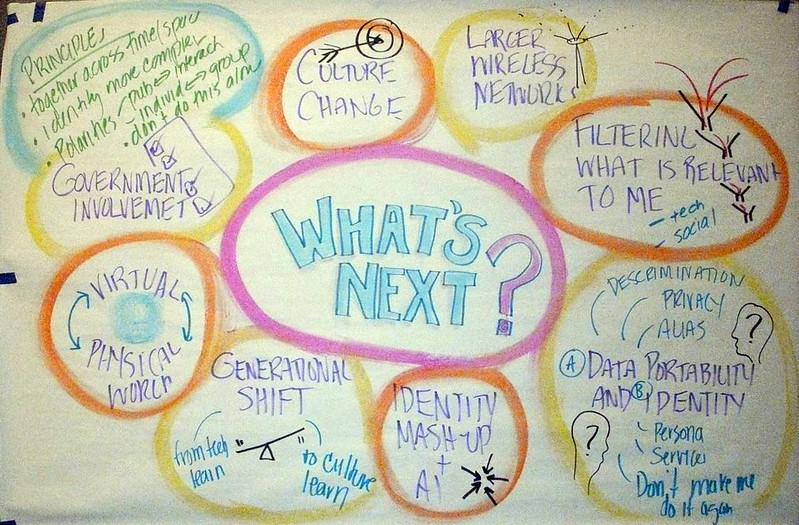 PRINCIPLES
• together across time/space
• Identity more complex
• Polarities - pub ↔ interack
individ ↔ group
• don't do this alone
CULTURE
CHANGE
LARGER
WIRELESS
NETWORK
GOVERNMENT
INVOLVEMET
FILTERING
WHAT IS RELEVANT
TO ME
- tech
- social
WHAT'S
NEXT?
VIRTUAL
PHYSICAL
WORLD
GENERATIONAL
SHIFT
from tech
learn
to culture
learn
IDENTITY
MASH-UP
+
AI
DESCRIMINATION
PRIVACY
ALIAS
?
A DATA PORTABILITY
AND B IDENTITY
?
Persona
Services
Don't make me
do it again